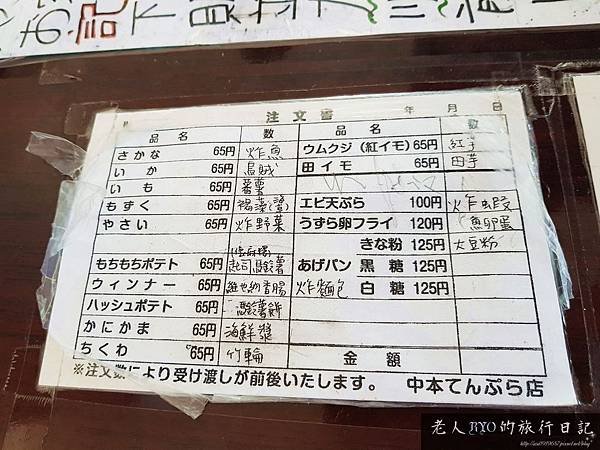 注文書 年 月 日
品名 数 品名 数
さかな 65円 炸魚 ウムクジ(紅イモ) 65円 紅芋
いか 65円 烏賊 田イモ 65円 田芋
いも 65円 蕃薯
もずく 65円 褐藻 エビ天ぷら 100円 炸蝦
やさい 65円 炸野菜 うずら卵フライ 120円
きな粉 125円 大豆粉
もちもちポテト 65円 起司馬鈴薯 あげパン 黒糖 125円
ウィンナー 65円 維也納香腸 炸麵包 白糖 125円
ハッシュポテト 65円 馬鈴薯餅
かにかま 65円 海鮮漿
ちくわ 65円 竹輪 金額
※注文数により受け渡しが前後いたします。 中本てんぷら店
老人RYO的旅行日記